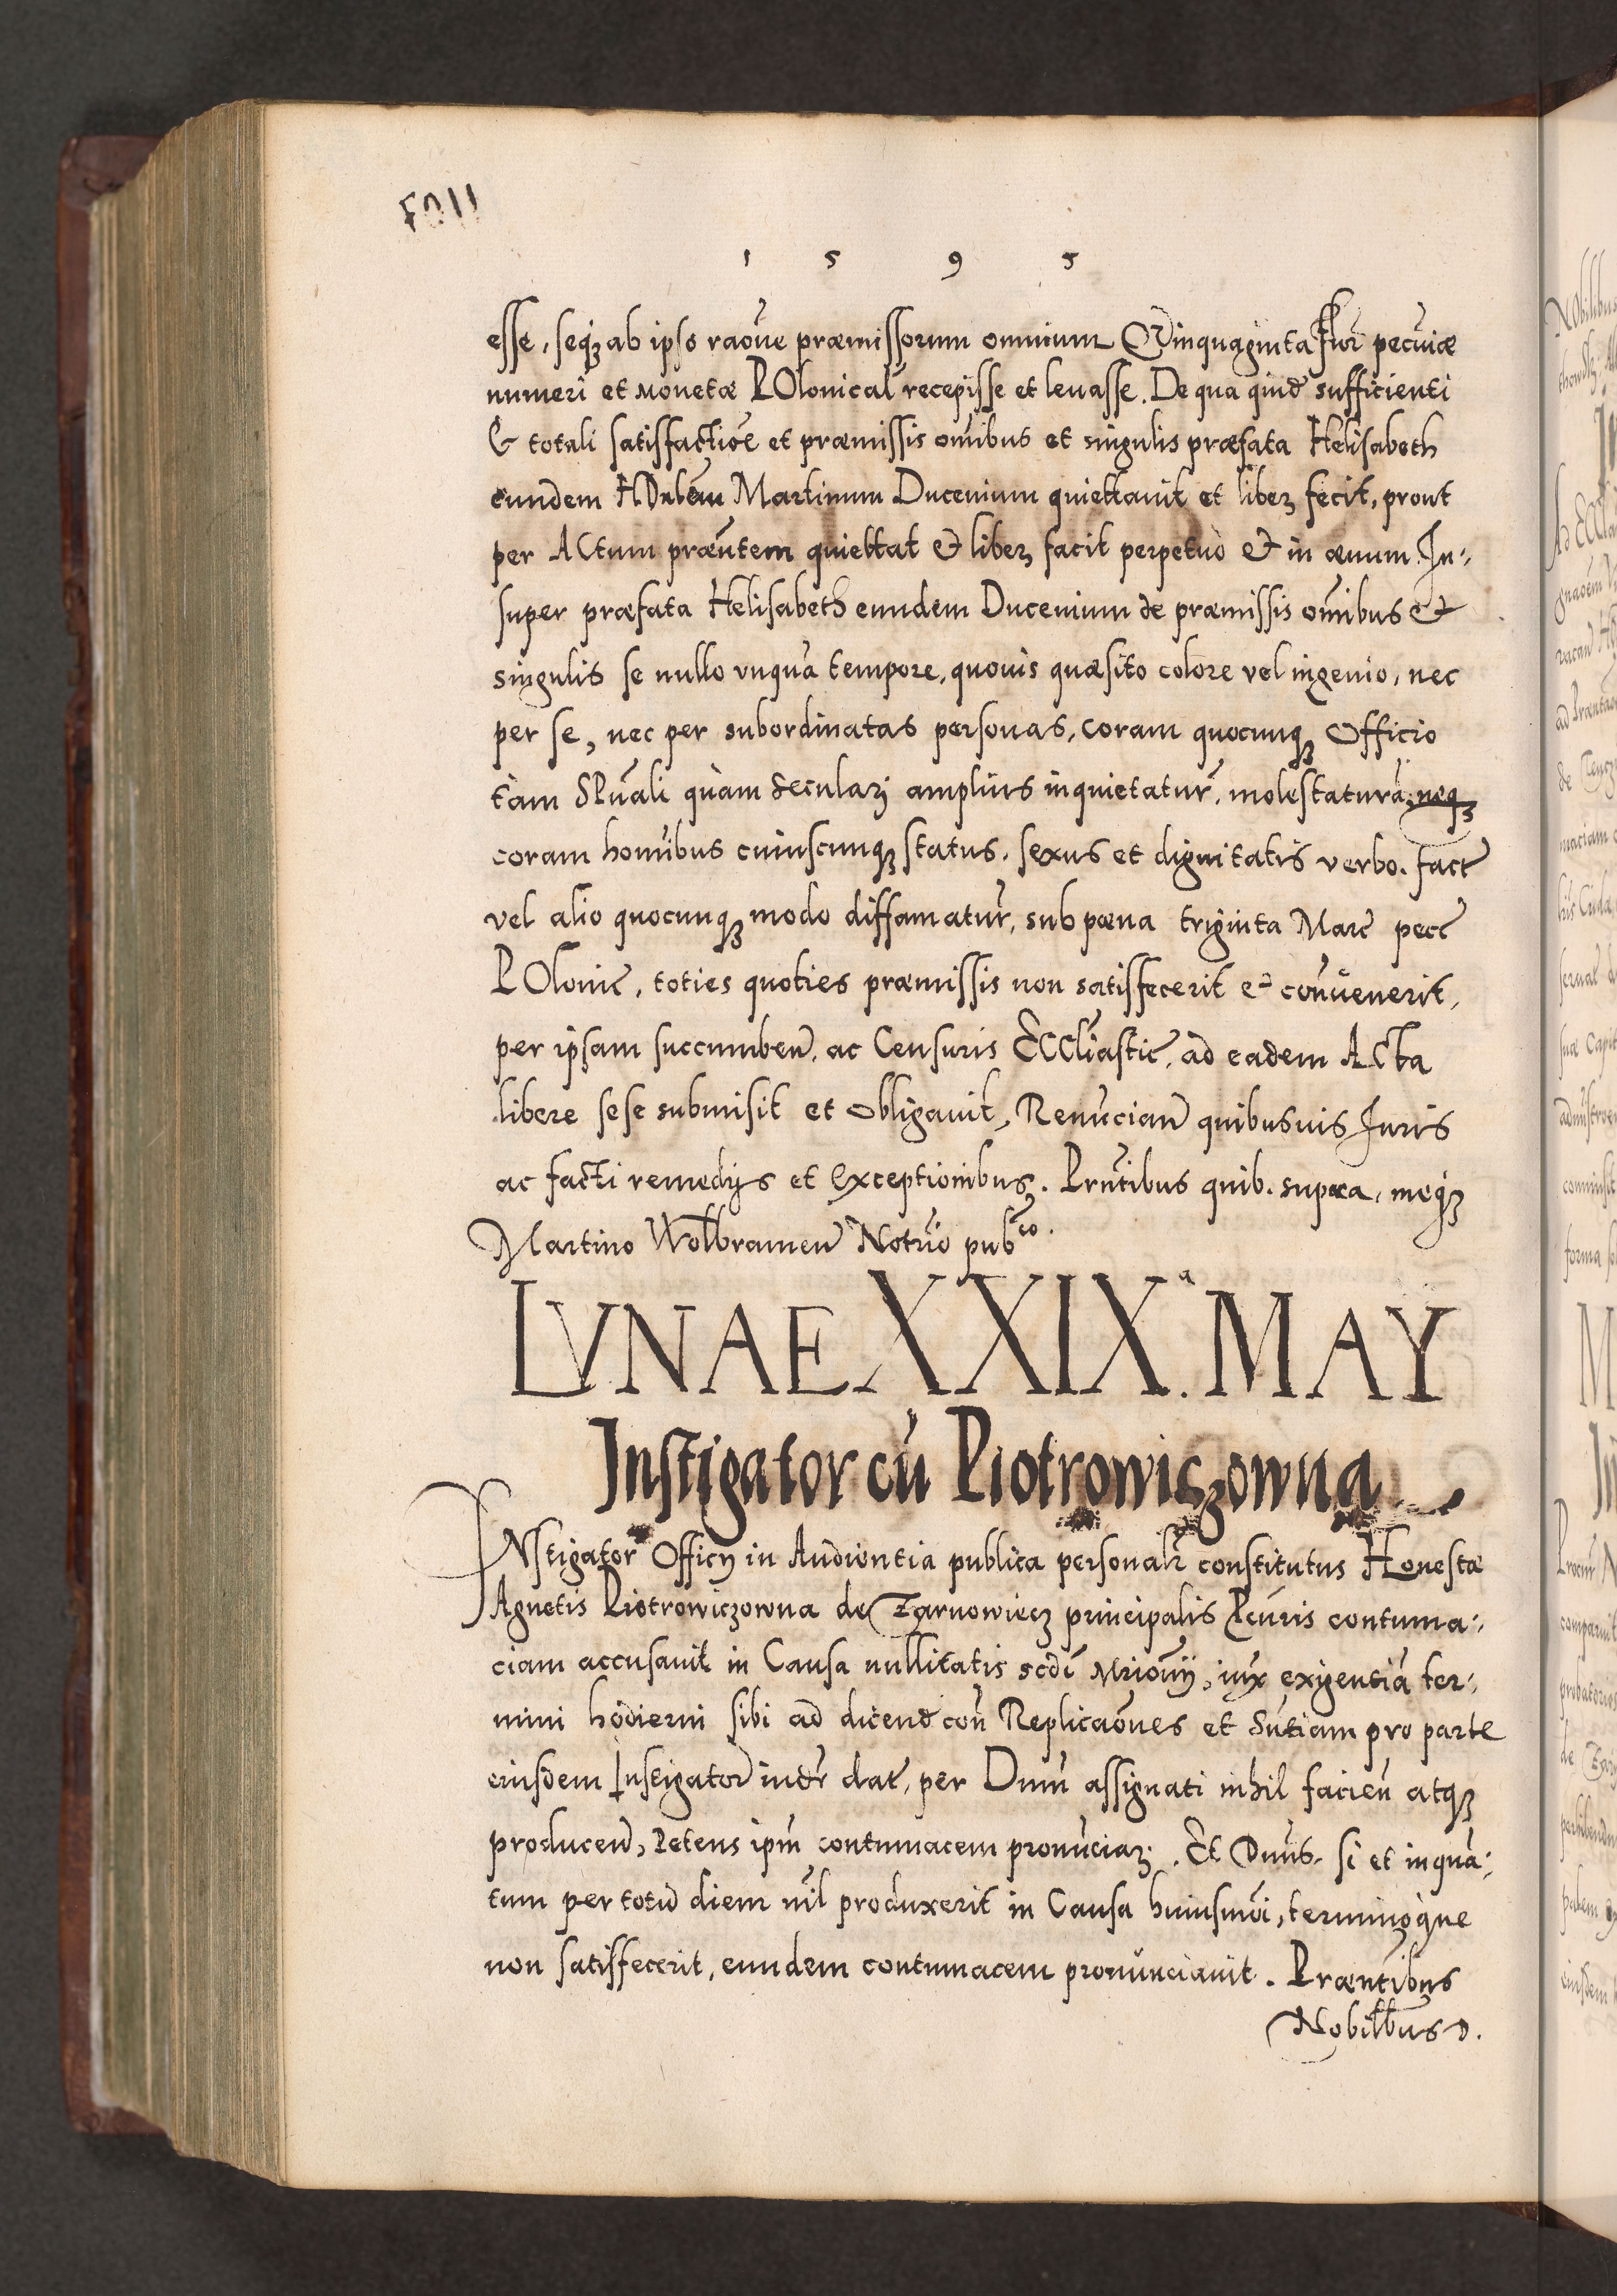 1 5 9 5
esse, seqꝫ ab ipso raōne præmissorum omnium Qvinquaginta flor̃ pecuniæ
numeri et monetæ POlonical̃ recepisse et leuasse. De qua quid̃ sufficienti
& totali satisfactiōe et præmissis om̃ibus et singulis præfata Helisabeth
eundem HOnbĕm Martinum Ducenium quiettauit et liberꝫ fecit, prout
per ACtum præn̄tem quiettat & liberꝫ facit perpetuò & in æuum. In-
super præfata Helisabeth eundem Ducenium de præmissis om̃ibus &
singulis se nullo vnquā tempore, quouis quæsito colore vel ingenio, nec
per se, nec per subordinatas personas, coram quocunqꝫ Officio
tàm SPuāli quàm Seculari amplius inquietatur̃, molestaturā, neqꝫ
coram hom̃ibus cuiuscunqꝫ status, sexus et dignitatis verbo, fact̃
vel alio quocunqꝫ modo diffamatur̃, sub pæna triginta Marc̃ pecc̃
POlonic̃, toties quoties præmissis non satisfecerit & conuenerit,
per ipsam succumben̄, ac Censuris ECCl̃iastic̃, ad eadem ACta
libere sese submisit et obligauit, Renūcian̄ quibusuis Iuris
ac facti remedijs et exceptionibus. Prn̄tibus quib. supra, meqꝫ
Martino Wolbramen̄ Notr̃io pub͠co.
LVNAE XXIX.ª MAY
Instigator cū Piotrowiczowna
INstigator Officij in Audientia publica personalr̃ constitutus Honestæ
Agnetis Piotrowiczowna de Żarnowiecz principalis Pcūris contuma-
ciam accusauit in Causa nullitatis scdi Mr̃iōnij, iux̃ exigentiā ter-
mini hodierni sibi ad dicend̃ con̄ Replicaōnes et Sn̄tiam pro parte
eiusdem Instigator̃ indr̃ dat̃, per Dnum assignati nihil facien̄ atqꝫ
producen̄, Petens ipm̄ contumacem pronūciarꝫ. Et Dnūs si et inquā-
tum per totū diem nīl produxerit in Causa huiusmōi, terminoque
non satisfecerit, eundem contumacem pronūnciauit. Præn̄tibus
Nobilibus D.